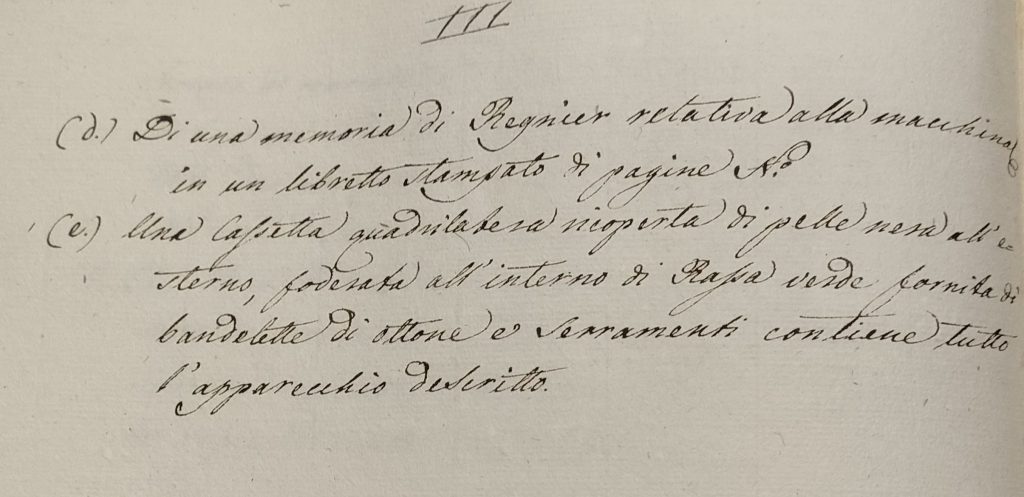 III
(d.) Di una memoria di Regnier relativa alla macchina e
in un libretto stampato di pagine N.°
(e.) Una Cassetta quadrilatera ricoperta di pelle nera all'e-
sterno, foderata all'interno di Rassa verde fornita di
bandelette di ottone e serramenti contiene tutto
l'apparecchio descritto.